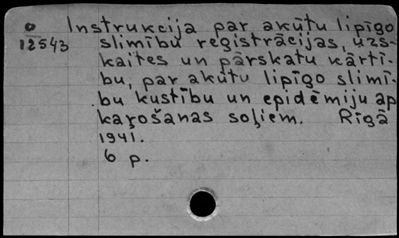 o Instrukcija par akūtu lipīgo
12543 slimību reģistrācijas, uzs-
kaites un pārskatu kārtī-
bu, par akūtu lipīgo slimī-
bu kustību un epidēmiju ap
kaŗošanas soļiem. Rīgā
1941.
6 p.